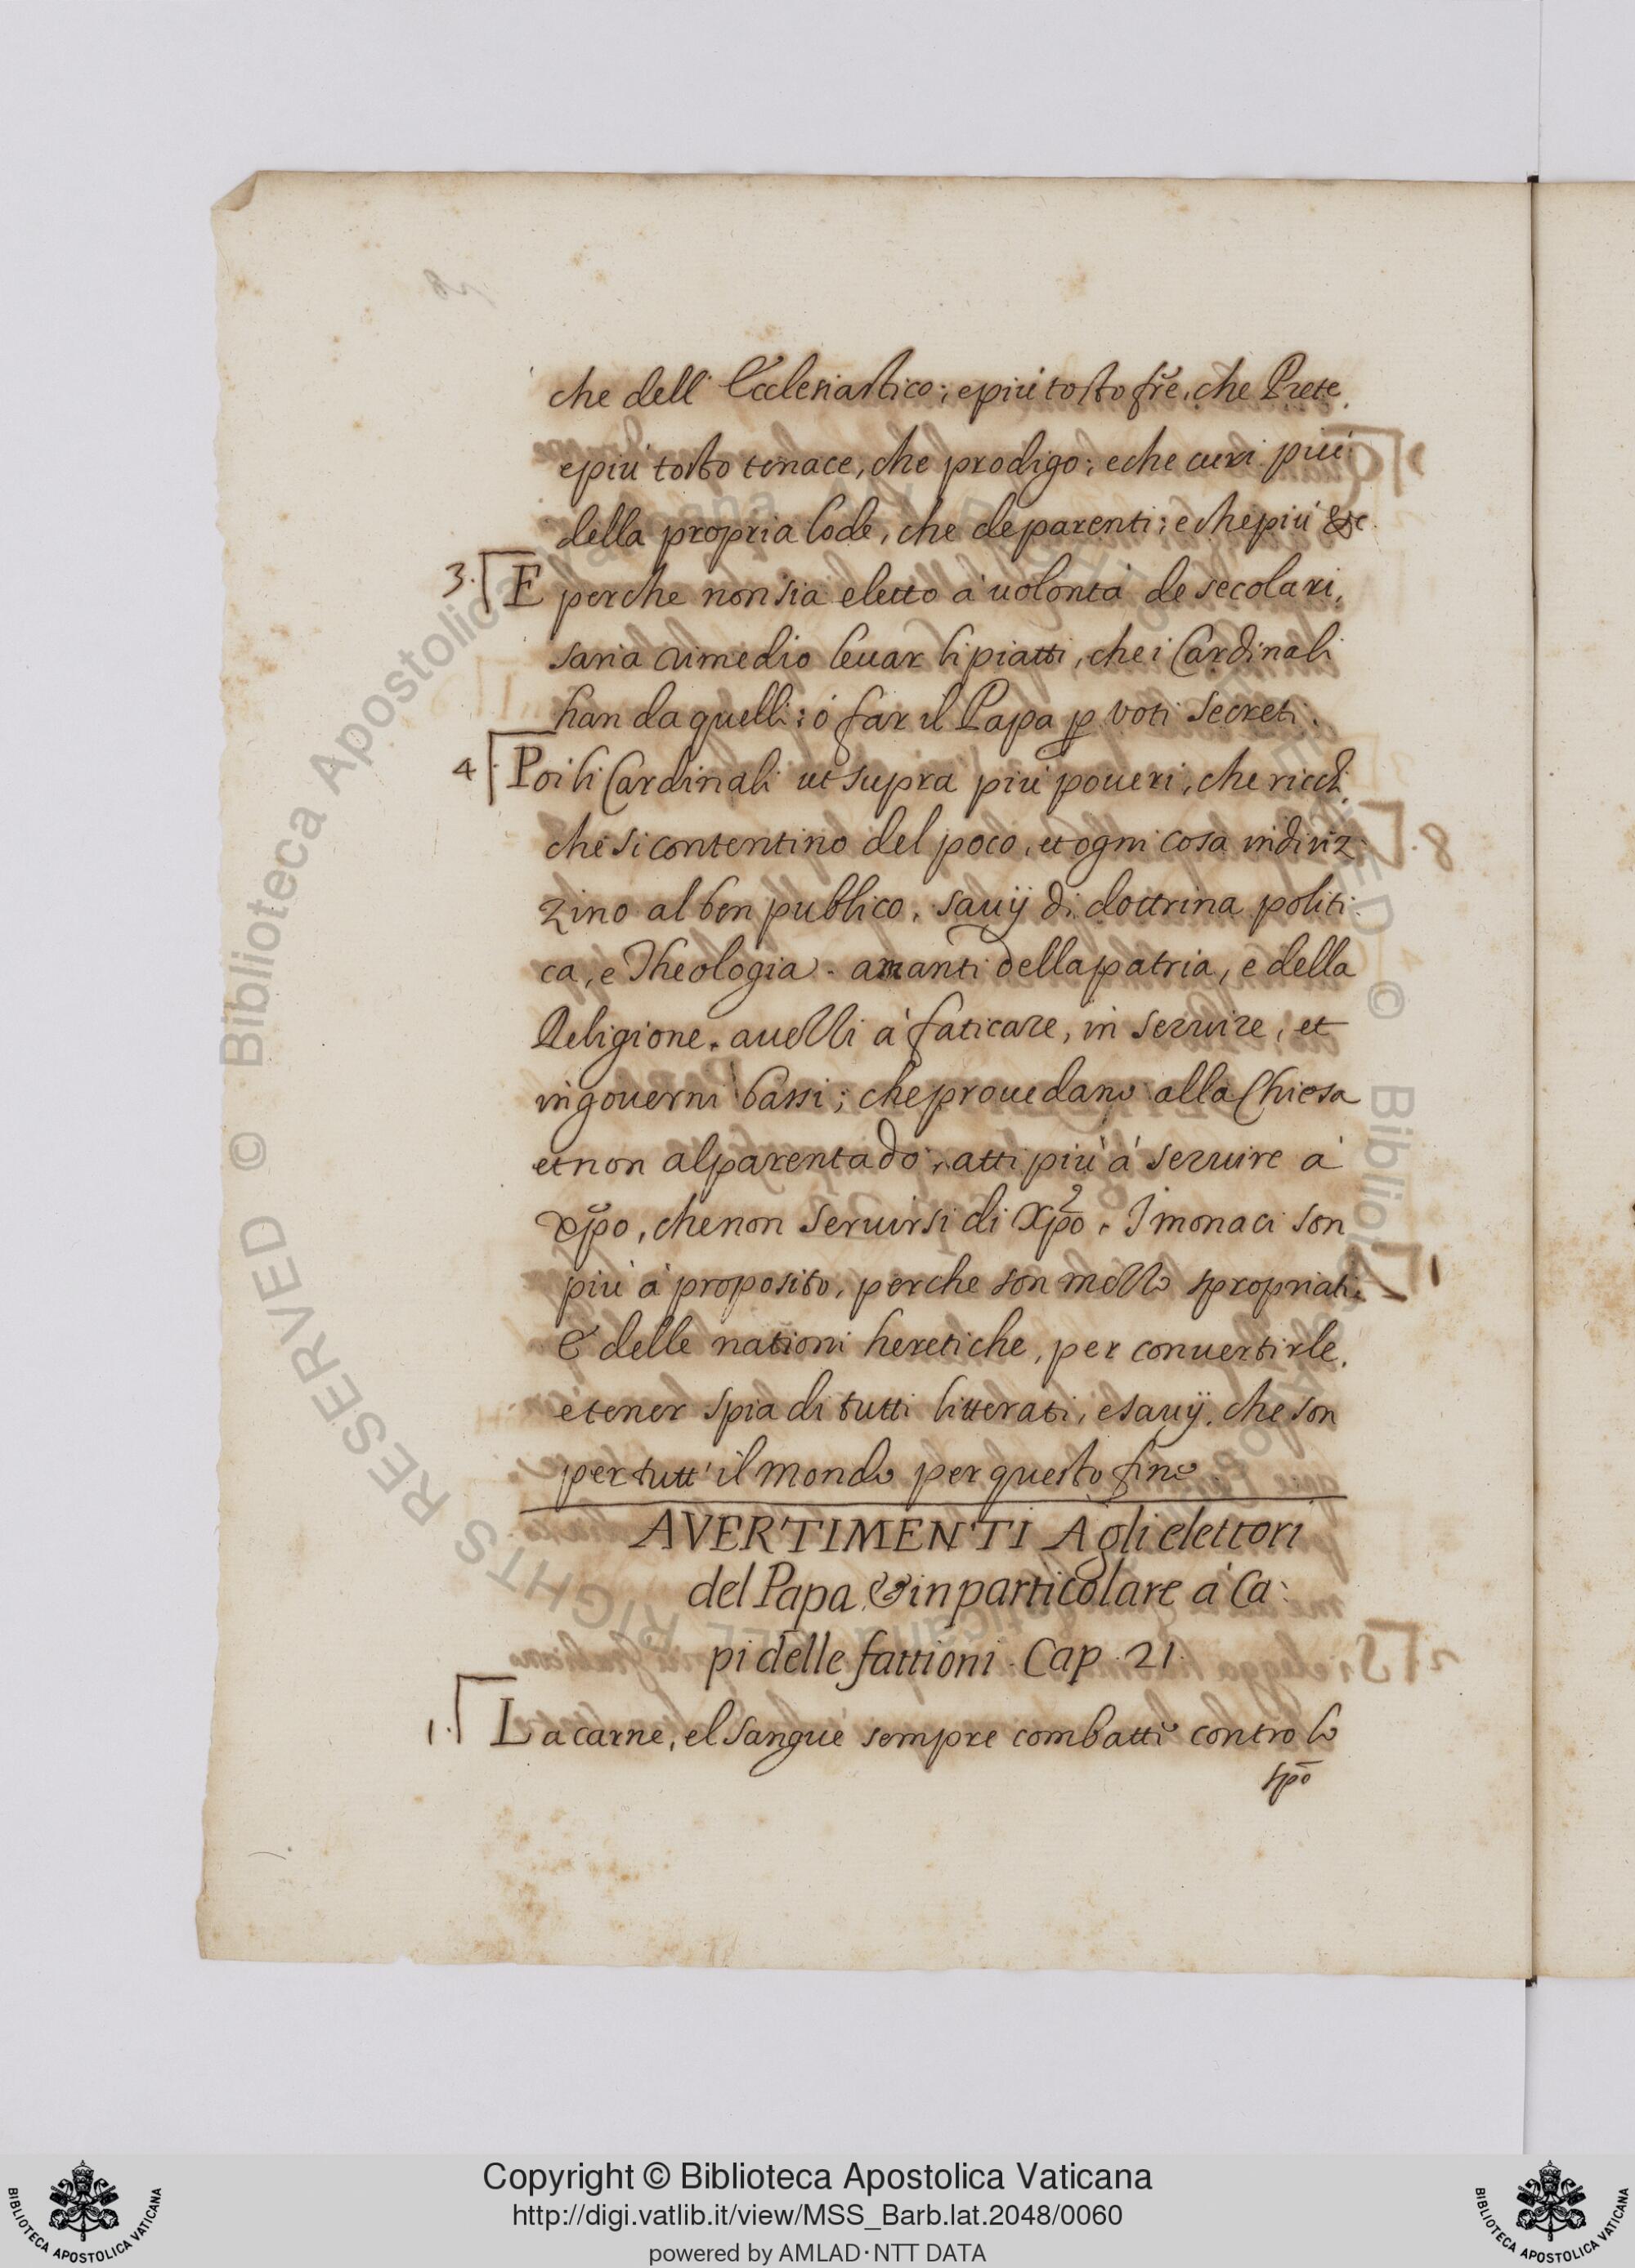 che dell' Ecclesiastico; e più tosto fr̃e, che Prete,
e più tosto tenace, che prodigo; e che curi più
della propria lode, che de parenti; e che più &c.
3. E perche non sia eletto à uolontà de secolari,
saria rimedio leuar li piatti, che i Cardinali
han da quelli; ò far il Papa ꝑ voti secreti.
4. Poi li Cardinali ut supra più poueri, che ricchi,
che si contentino del poco, et ogni cosa indiriz-
zino al ben publico, sauij di dottrina politi-
ca, e Theologia. amanti della patria, e della
Religione. auezzi à faticare, in seruire, et
in gouerni bassi; che prouedano alla Chiesa
et non al parentado, atti più à seruire à
Xp̃o, che non seruirsi di Xp̃o. I monaci son
più à proposito, perche son mezzo spropriati,
E delle nationi heretiche, per conuertirle,
e tener spia di tutti litterati, e sauij, che son
per tutt' il mondo per questo fine.
AVERTIMENTI Agli elettori
del Papa, & in particolare à Ca-
pi delle fattioni. Cap. 21.
1. La carne, el sangue sempre combattè contro lo
sp̃o
Copyright © Biblioteca Apostolica Vaticana
http://digi.vatlib.it/view/MSS_Barb.lat.2048/0060
powered by AMLAD·NTT DATA
BIBLIOTECA APOSTOLICA VATICANA
BIBLIOTECA APOSTOLICA VATICANA